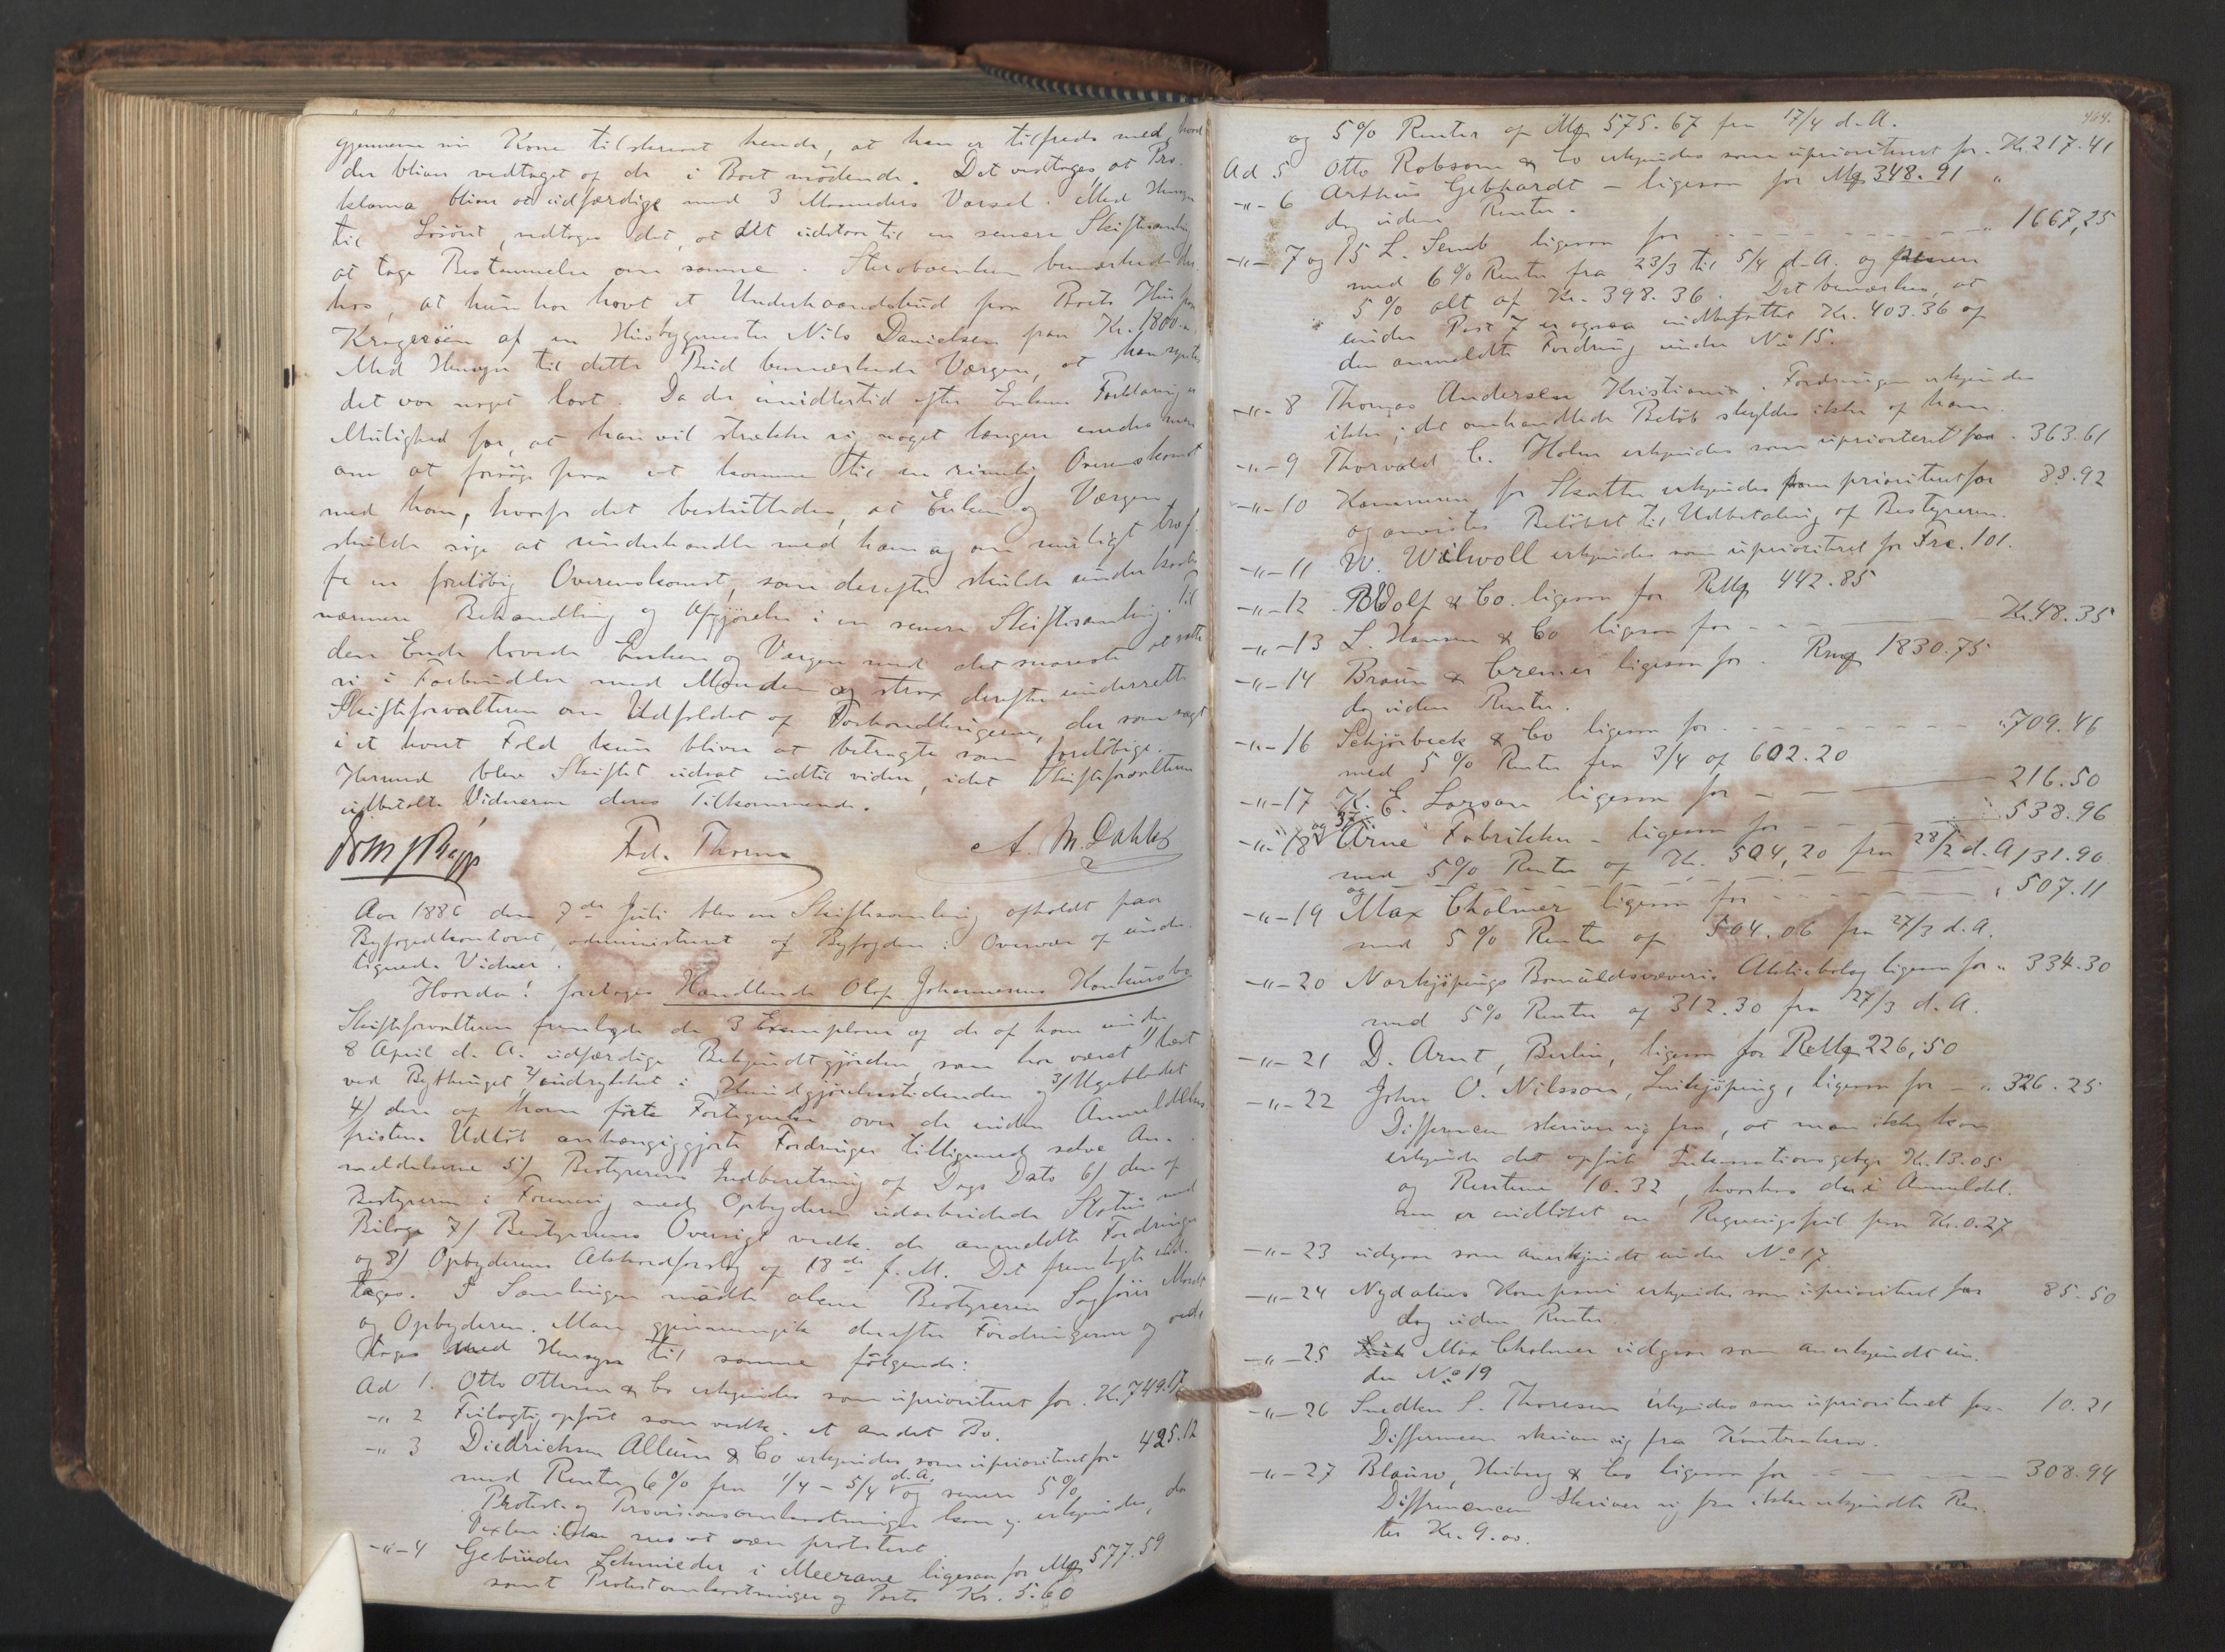 gjennem sin Kone tilskrevet hende, at han er tilfreds med, hvad
der bliver vedtaget af de i Boet mødende. Det vedtoges at Pro-
klama bliver at udfærdige med 3 Maaneders Varsel. Med Hensyn
til Løsøret, vedtoges det, at det udstaar til en senere Skiftesamling
at tage Bestemmelse om samme. Sterboenken bemærkede der-
hos, at hun har havt et Underhaandsbud paa Boets Hus paa
Kragerøen af en Husbygmester Nils Danielsen paa Kr. 1800.
Med Hensyn til dette Bud bemærkede Værgen, at han syntes
det var noget lavt. Da der imidlertid efter Enkens Forklaring er
Mulighed for, at han vil strække sig noget længere
om at forsøge paa at komme til en rimelig Overenskomst
med ham, hvorfor det besluttedes, at Enken og Værgen
skulde søge at underhandle med ham og om muligt træf-
fe en foreløbig Overenskomst, som derefter skulde underkastes
nærmere Behandling og Afgjørelse i en senere Skiftesamling. Til
den Ende lovede Enken og Værgen med det snareste at sætte
sig i Forbindelse med Manden og strax derefter underrette
Skifteforvalteren om Udfaldet af Forhandlingerne, der som sagt
i et hvert Fald kun bliver at betragte som foreløbige.
Hermed blev Skiftet udsat indtil videre, idet Skifteforvalteren
udbetalte Vidnerne deres Tilkommende.
Fred. Thorne A. M. Dahll
Aar 1886 den 7de Juli blev en Skiftesamling afholdt paa
Byfogedkontoret, administreret af Byfogden i Overvær af under-
tegnede Vidner.
Hvorda! foretoges Handlende Olaf Johannesens Konkursbo
Skifteforvalteren fremlagde de 3 Exemplarer af de af ham under
8 April d. A. udfærdige Bekjendtgjørelser, som har været 1/ læst
ved Bythinget 2/ indrykket i Kundgjørelsestidenden og 3/ Ugebladet
4/ den af ham førte Fortegnelse over de inden Anmeldelses-
fristens Udløb anhængiggjorte Fordringer tilligemed selve An-
meldelserne 5/ Bestyrerens Indberetning af Dags Dato 6/ den af
Bestyreren i Forening med Opbyderen udarbeidede Status med
Bilage 7/ Bestyrerens Oversigt vedk. de anmeldte Fordringer
og 8/ Opbyderens Akkordforslag af 18de f. M. Det fremlagte ind-
tages. I Samlingen mødte alene Bestyreren Sagfører
og Opbyderen. Man gjennemgik derefter Fordringerne og ved-
toges med Hensyn til samme følgende:
Ad 1. Otto Ottesen & Co erkjendes som uprioriteret for. Kr. 749.17
-"- 2 Feilagtig opført som vedk. et andet Bo.
-"- 3 Diedrichsen Alleum & Co erkjendes som uprioriteret for 425.12
med Renter 6% fra 1/4 - 5/4 d.A. og senere 5%
Protest- og Provisionsomkostninger kan ei erkjendes, da
Vexlen ikke sees at være protesteret.
-"- 4 Gebrüder Schmieder i Meerane ligesaa for Mk 577.59
samt Protestomkostninger og Porto Kr. 5.60
464.
og 5% Renter af Mk 575.67 fra 17/4 d.A.
Ad 5 Otto Robsom & Co erkjendes som uprioriteret for. Kr. 217.41
-"- 6 Arthur Gebhardt - ligesaa for Mk 348.91 "
dog uden Renter.
-"- 7 og 15 L. Semb ligesaa for - - - " 1667,25
med 6% Renter fra 23/3 til 5/4 d.A. og senere
5% alt af Kr. 398.36. Det bemærkes, at
under Post 7 er ogsaa indbefattet Kr. 403.36 af
den anmeldte Fordring under No 15.
-"- 8 Thomas Andersen Kristiania. Fordringen erkjendes
ikke; det omhandlede Beløb skyldes ikke af ham.
-"- 9 Thorvald C. Holm erkjendes som uprioriteret for. 363.61
-"- 10 Kommunen for Skatter erkjendes som prioriteret for 88.92
og anvistes Beløbet til Udbetaling af Bestyreren.
-"- 11 W. Wilwoll erkjendes som uprioriteret for Frc. 101.
-"- 12 Wolf & Co. ligesaa for Rmk 442.85
-"- 13 L. Hansen & Co ligesaa for - - - Kr. 48.35
-"- 14 Braun & Cremer ligesaa for. Rmk 1830.75
dog uden Renter.
-"- 16 Schjørbeck & Co ligesaa for - - - " 709.46
med 5% Renter fra 3/4 af 602.20
-"- 17 K. E. Larsson ligesaa for - - - 216.50
-"- 18 og 37 Arne Fabrikker - ligesaa for - - - 538.96
med 5% Renter af Kr. 504,20 fra 28/2 d.A. og 131.90
-"- 19 Max Cholmer ligesaa for - - - " 507.11
med 5% Renter af 504.06 fra 27/3 d.A.
-"- 20 Norkjøpings Bomuldsvæveris Aktiebolag ligesaa for " 334.30
med 5% Renter af 312.30 fra 27/3 d.A.
-"- 21 D. Arnt, Berlin, ligesaa for Rmk 226,50
-"- 22 John O. Nilsson, Linkjøping, ligesaa for - " 326.25
Differencen skriver sig fra, at man ikke kan
erkjende det opførte Informationsgebyr Kr. 13.05
og Renterne 10.32, hvorhos der i Anmeldel-
sen er indløbet en Regningsfeil paa Kr. 0.27
-"- 23 udgaar som anerkjendt under No 17
-"- 24 Nydalens Kompani erkjendes som uprioriteret for 85.50
dog uden Renter.
-"- 25 Max Cholmer udgaar som anerkjendt un-
der No 19
-"- 26 Snedker S. Thoresen erkjendes som uprioriteret for 10.21
Differencen skriver sig fra Kontrakrav.
-"- 27 Blauw, Heiberg & Co ligesaa for - - - 308.94
Differencen skriver sig fra ikke erkjendte Ren-
ter Kr. 9.00.